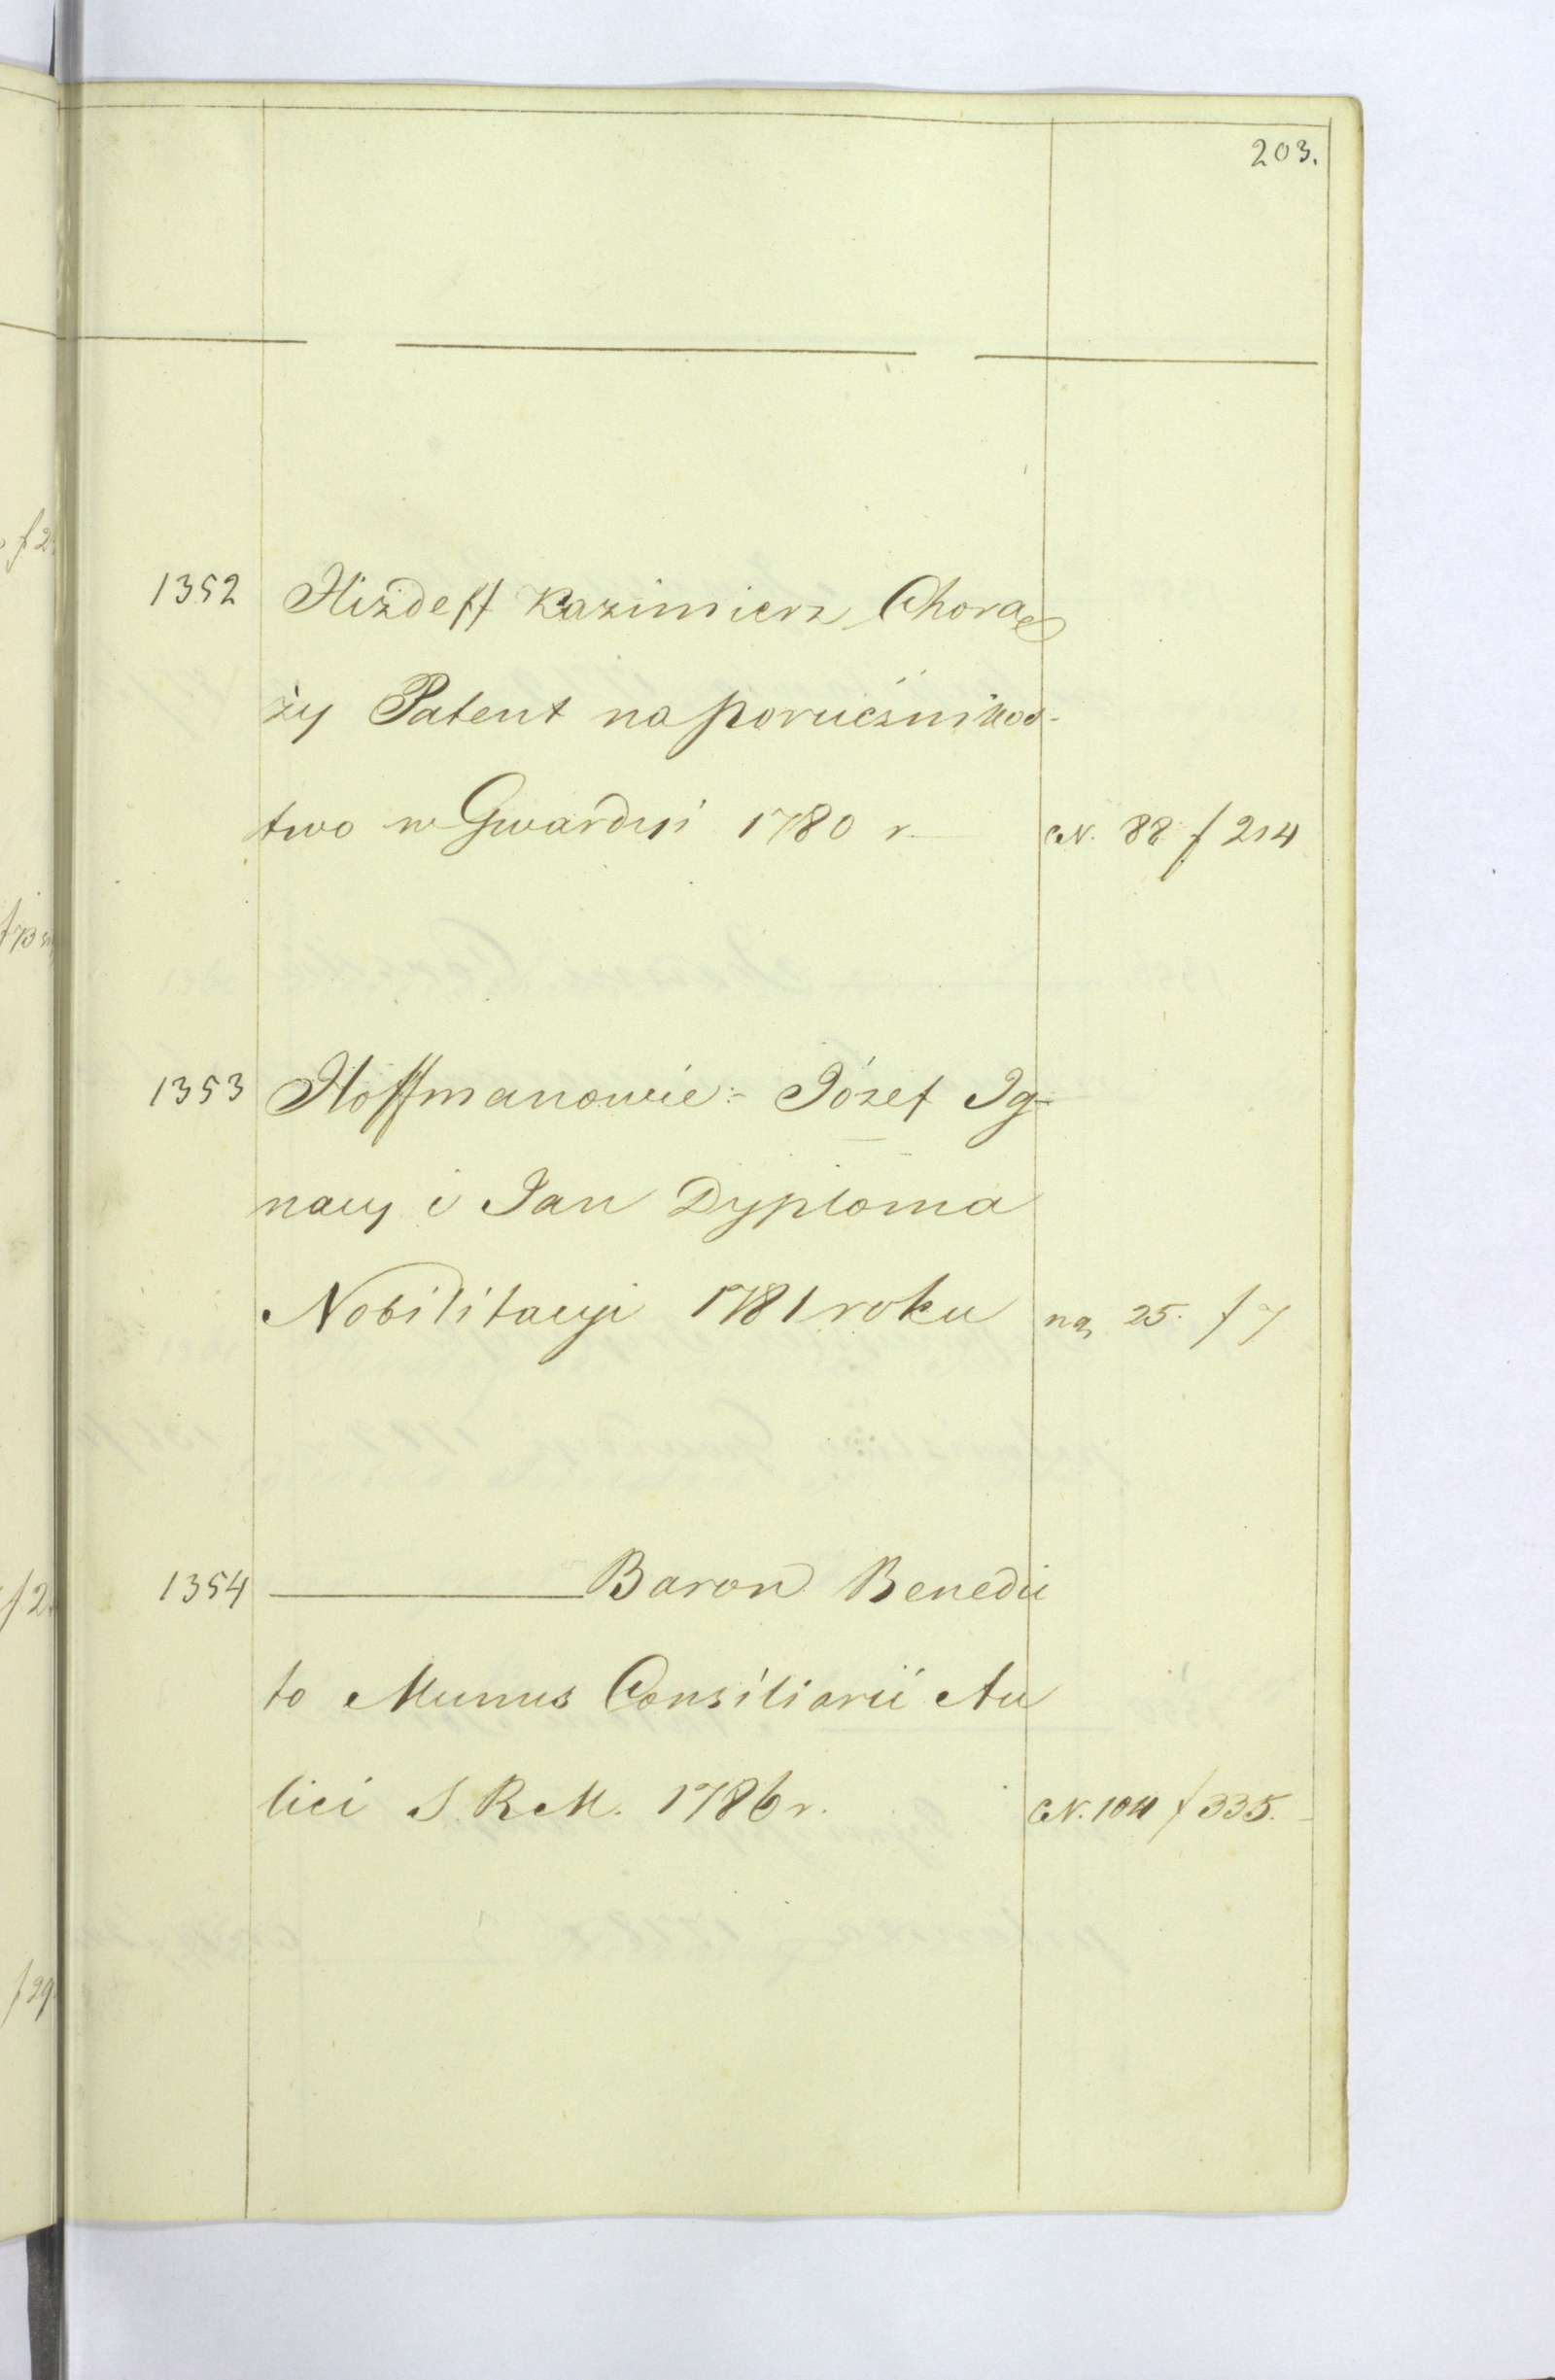 203.
1352 Hiżdeff Kazimierz Chorą
ży Patent na porucznikos-
two w Gwardyi 1780 r CN. 88 f 214
1353 Hoffmanowie: Józef Ig-
nacy i Jan Dyploma
Nobilitacyi 1781 roku na 25. f 7
1354 Baron Benedic
to Munus Consiliarii Au
lici S. R. M. 1786 r. CN. 104 f 335.